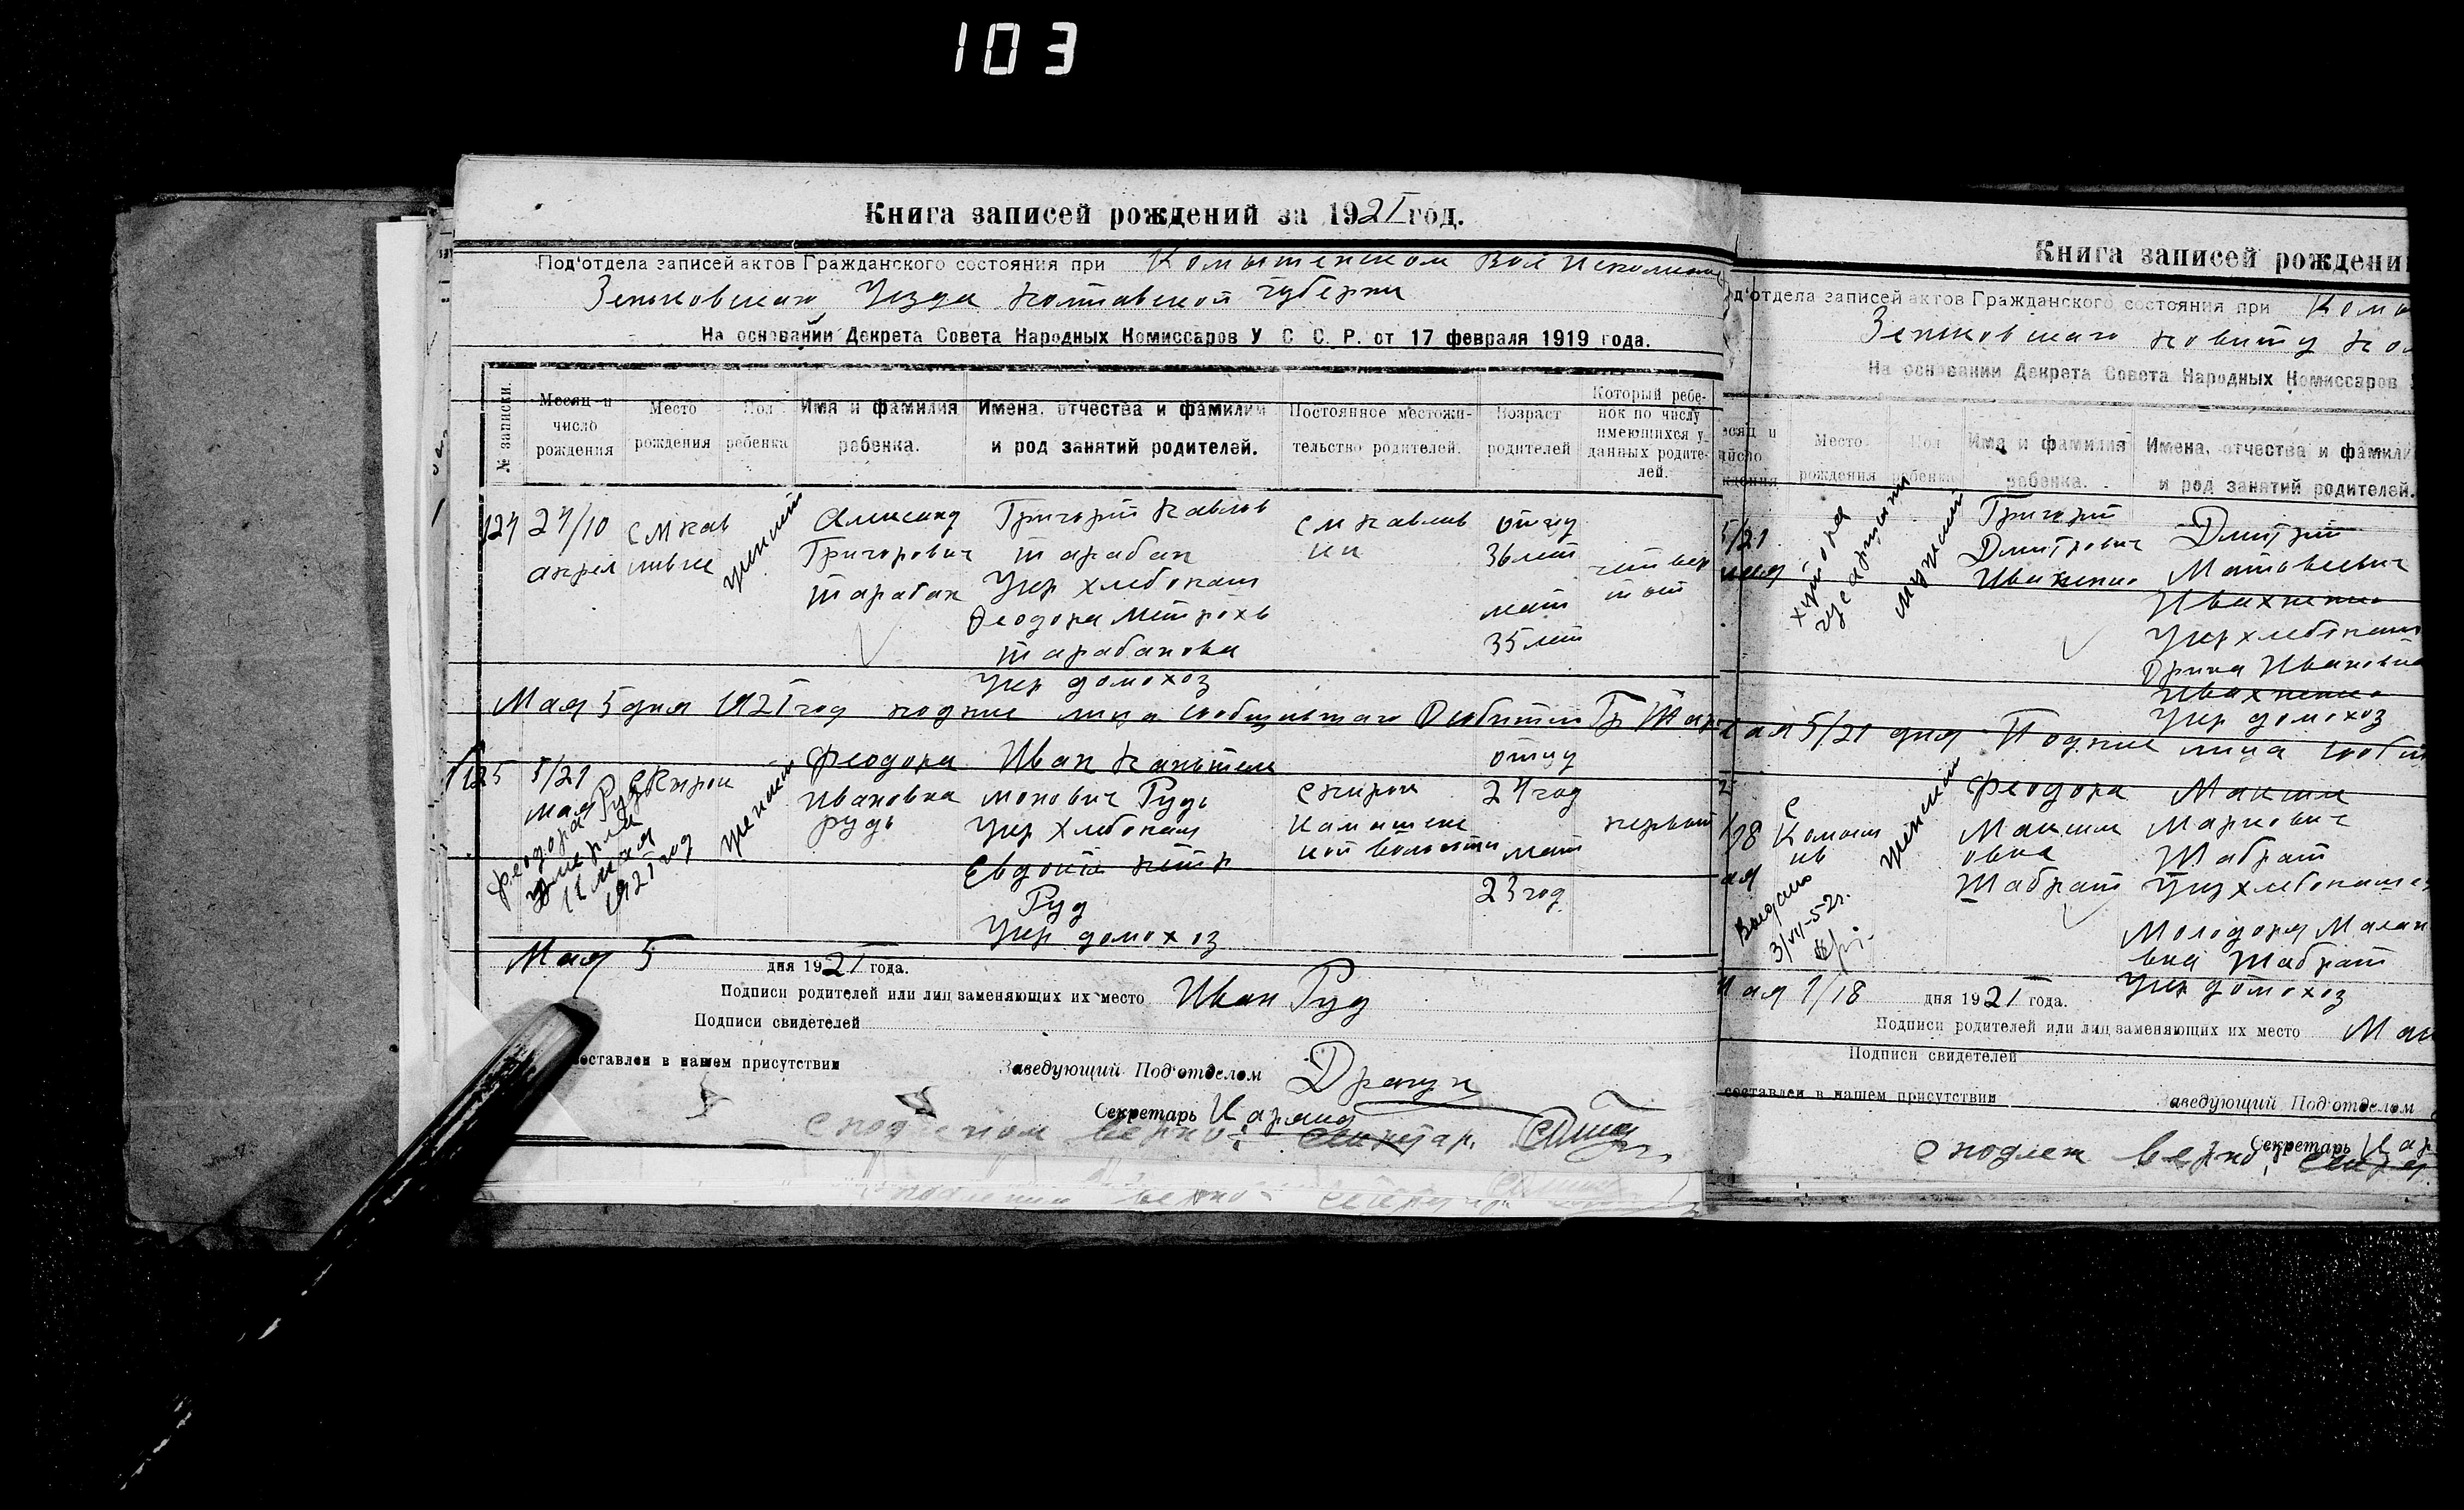 103
Книга записей рождений за 1921 год.
Под'отдела записей актов Гражданского состояния при Комышенском Вол Исполкоме
Зеньковского Уезда Полтавской Губерни
На основании Декрета Совета Народных Комиссаров У С С. Р. от 17 февраля 1919 года.
№ записки.
Месяц и число рождения
Место рождения
Пол ребенка
Имя и фамилия ребенка.
Имена, отчества и фамилии и род занятий родителей.
Постоянное местожительство родителей.
Возраст родителей
Который ребенок по числу имеющихся у данных родителей.
124
27/10
апрел
женский
Александ
Григорович
Тарабан
Григорий Павлов
Тарабан
Укр хлебопаш
Феодора Митрохв
Тарабанова
Укр домохоз
отцу
36 лет
мат
35 лет
четвер
тот
Мая 5 дня 1921 год подпис лица сообщившего О событии Гр Тар
125
5/21
мая
женский
Феодора
Ивановна
Рудь
Иван Пантеле
монович Рудь
Укр Хлебопаш
Евдокия Петр
Руд
Укр домохоз
отцу
24 год
мат
23 год
первый
Феодора Рудь
умерла
11 мая
1921 год
Мая 5 дня 1921 года.
Подписи родителей или лиц заменяющих их место Иван Руд
Подписи свидетелей
составлен в нашем присутствии
Заведующий Под'отделом
Секретарь
верно: Секретар,
Книга записей рождени
д'отдела записей актов Гражданского состояния при Комы
Зеньковского Повиту По
На основании Декрета Совета Народных Комиссаров
Место рождения
Пол ребенка
Имя и фамилия ребенка.
Имена, отчества и фамили
и род занятий родителей.
5/21
мая
хутора
мужеский
Григорий
Дмитрович
Ивахненко
Дмитрий
Матвеевич
Ивахненко
Укр хлебопаш
Орина Ивановна
Ивахненко
Укр домохоз
мая 5/21 дня Подпис лица сообщ
женский
Феодора
Максим
овна
Шабрат
Максим
Маркович
Шабрат
Укр хлебопаш
Шабрат
Укр домохоз
Выдано
Мая 1/18 дня 1921 года.
Подписи родителей или лиц заменяющих их место Мак
Подписи свидетелей
составлен в нашем присутствии
Заведующий Под'отделом
Секретарь
верно,